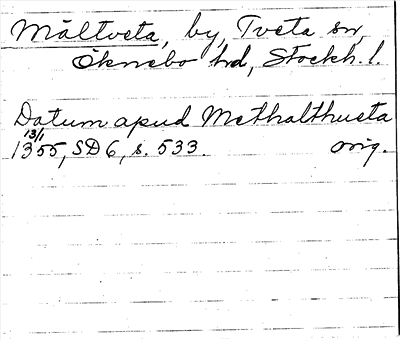 Måltveta, by, Tveta sn,
Öknebo hd, Stockh. l.
Datum apud Methalthueta
13/1
1355, SD 6, s. 533. orig.